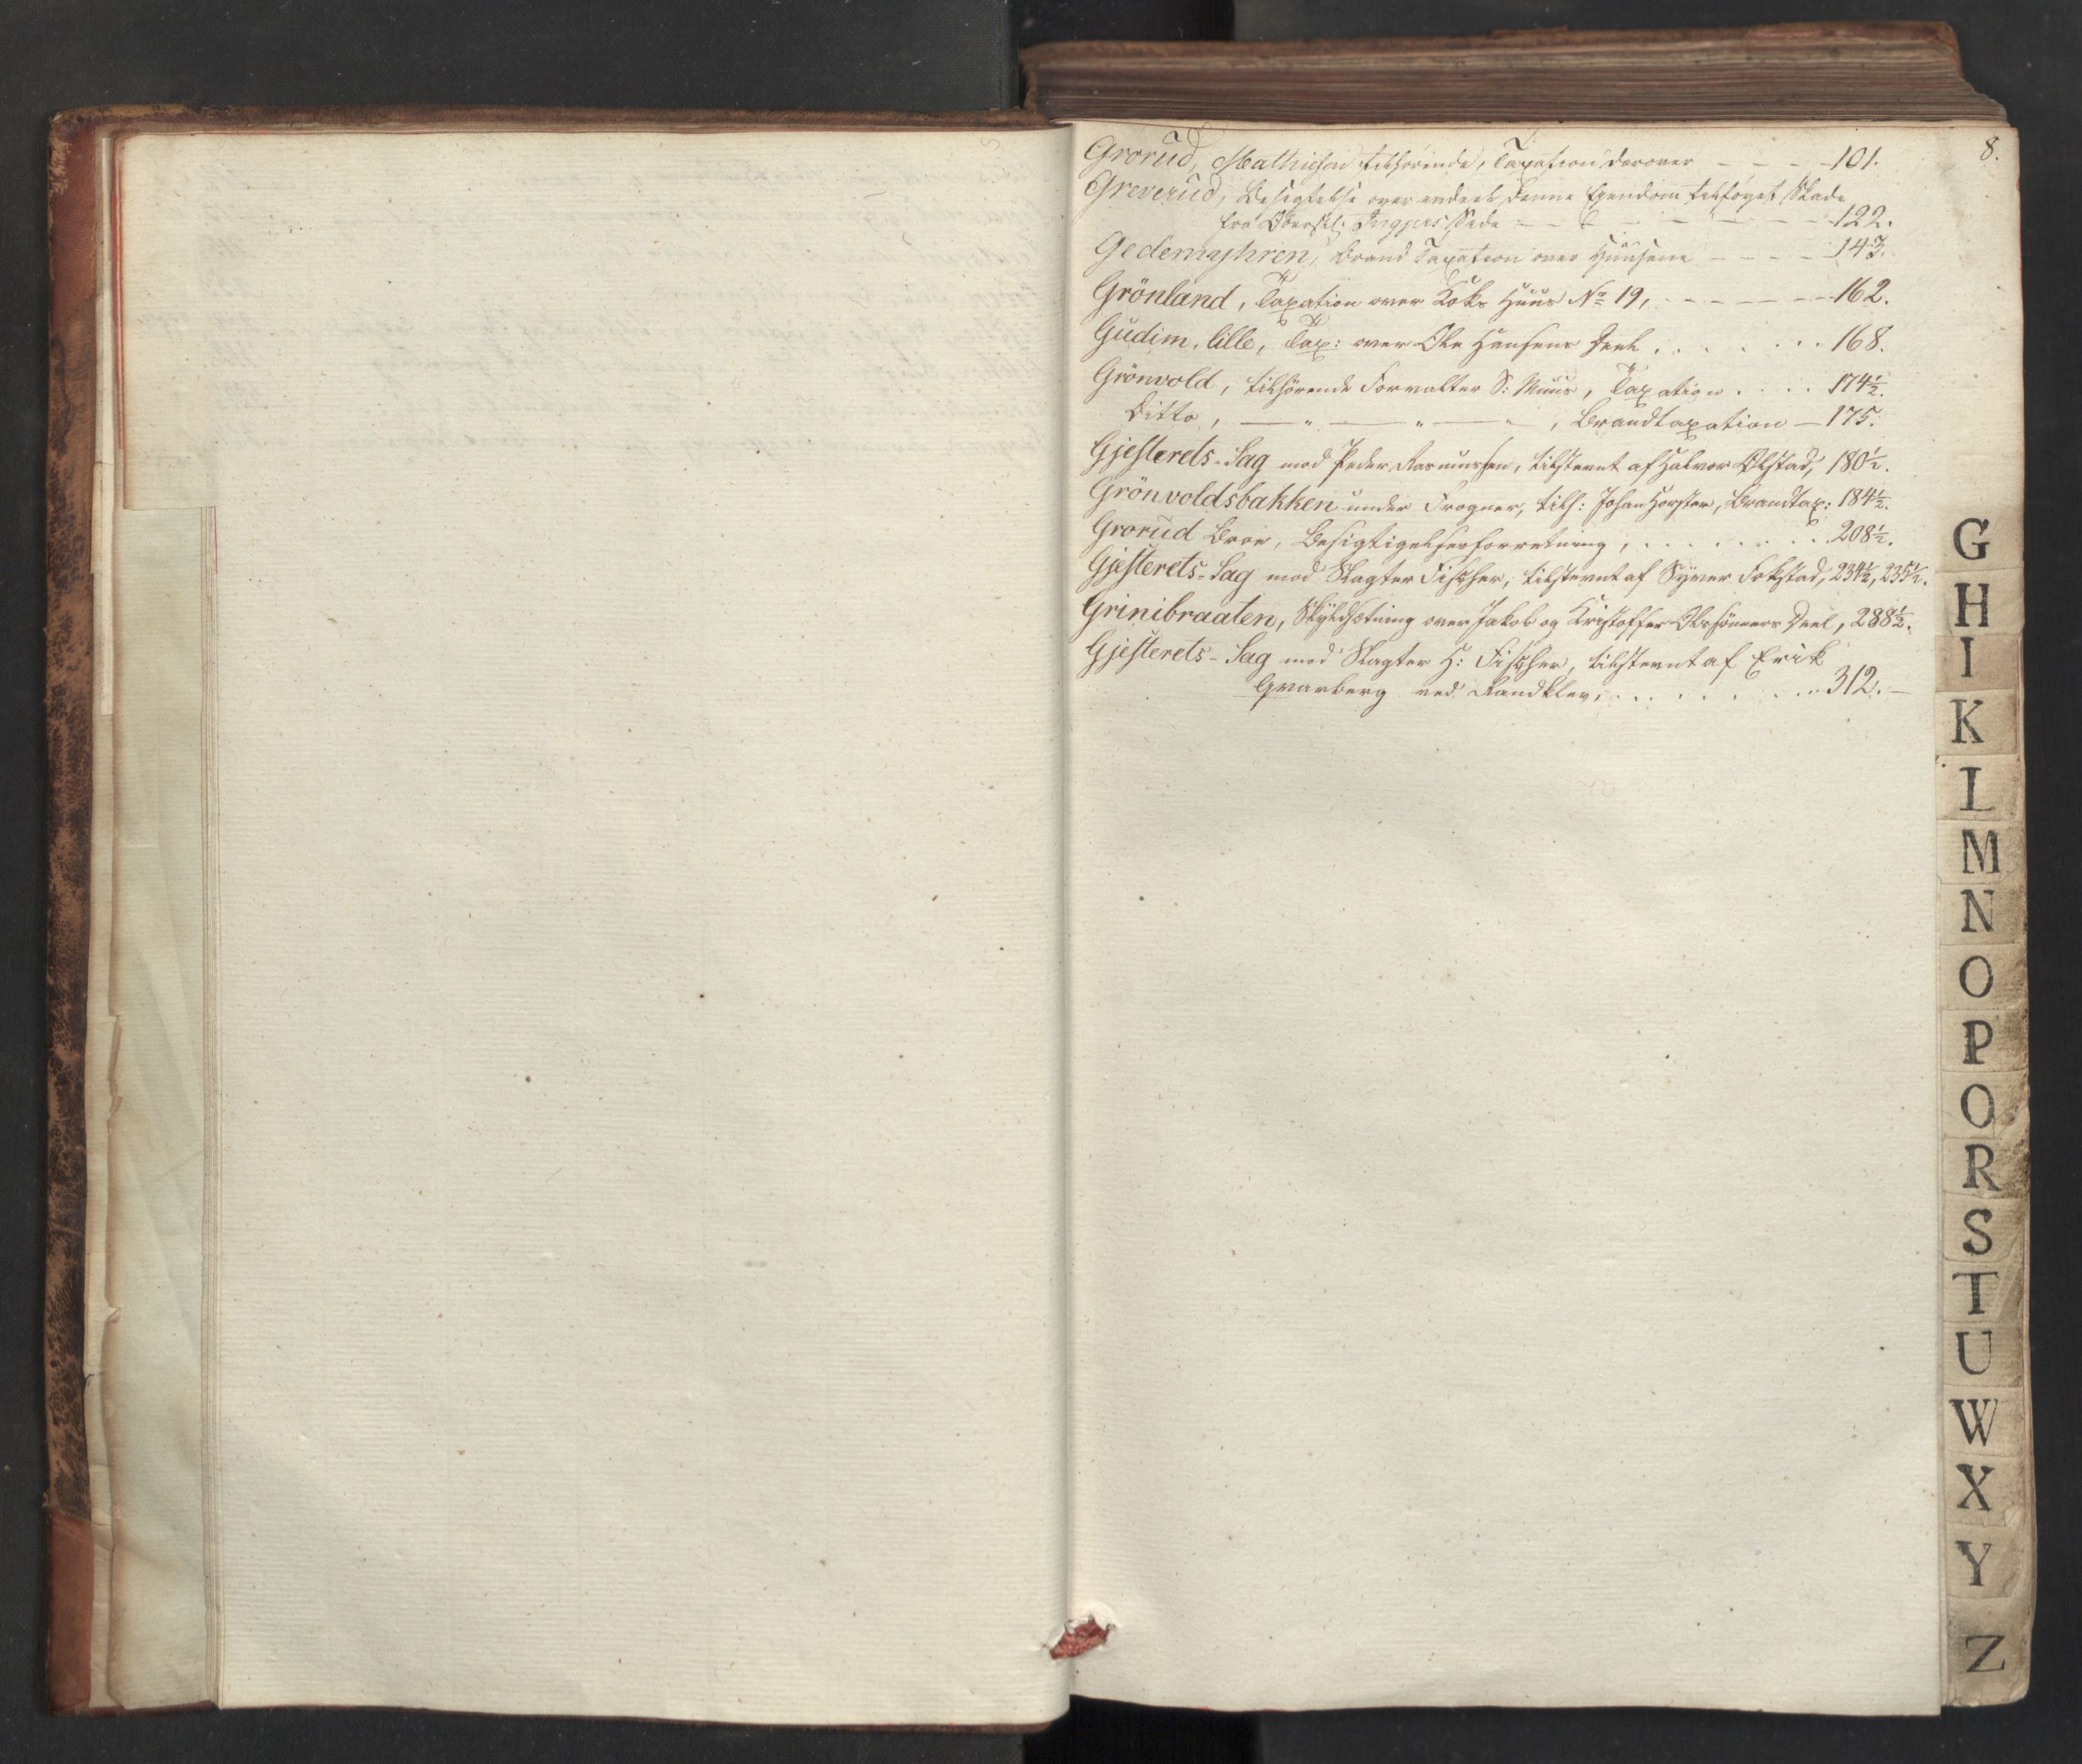 8.
Grorud, Mathiesen tilhørende, Taxation derover - - - - 101.
Greverud, Besigtelse over endeel denne Eyendom tilføyet Skade
fra Oberstl: Side - - - - - - 122.
Gedemyhren, Brand Taxation over Huusene - - - - 143.
Grönland, Taxation over Koks Huus No 19, - - - - - - 162.
Gudim, lille, Tax: over Ole Hansens Deel . . . . . . . 168.
Grönvold, tilhörende Forvalter S: Muus, Taxation . . . . 174½.
Ditto, — " — " — " , Brandtaxation — 175.
Gjesterets-Sag mod Peder Rasmussen, tilstevnt af Halvor Olstad, 180½.
Grönvoldsbakken under Frogner, tilh: Johan Horster, Brandtax: 184½.
Grorud Broe, Besigtigelsesforretning, . . . . . . . . 208½.
Gjesterets-Sag mod Slagter Fischer, tilstevnt af Syver Fokstad, 234½, 235½.
Grinibraaten, Skyldsætning over Jakob og Kristoffer Olssönners Deel, 288½.
Gjesterets-Sag mod Slagter H: Fischer, tilstevnt af Erik
Qvarberg ved Randklev, . . . . . . . . 312. —
G
H
I
K
L
M
N
O
P
Q
R
S
T
U
W
X
Y
Z